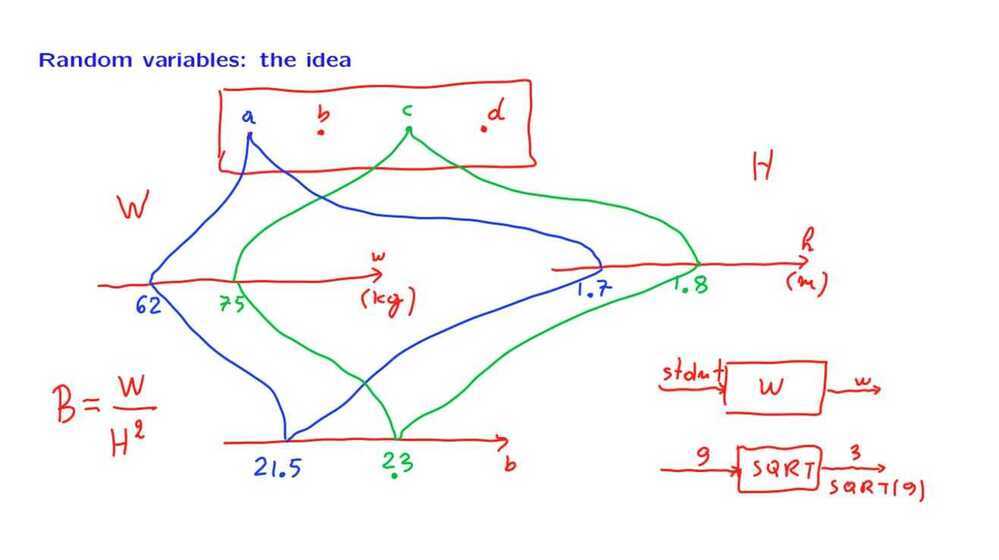 Random variables: the idea
a b c d
W
H
w
(kg)
h
(m)
62 75
1.7 1.8
B = W / H²
21.5 23 b
stdnt W w
9 SQRT 3
SQRT(9)